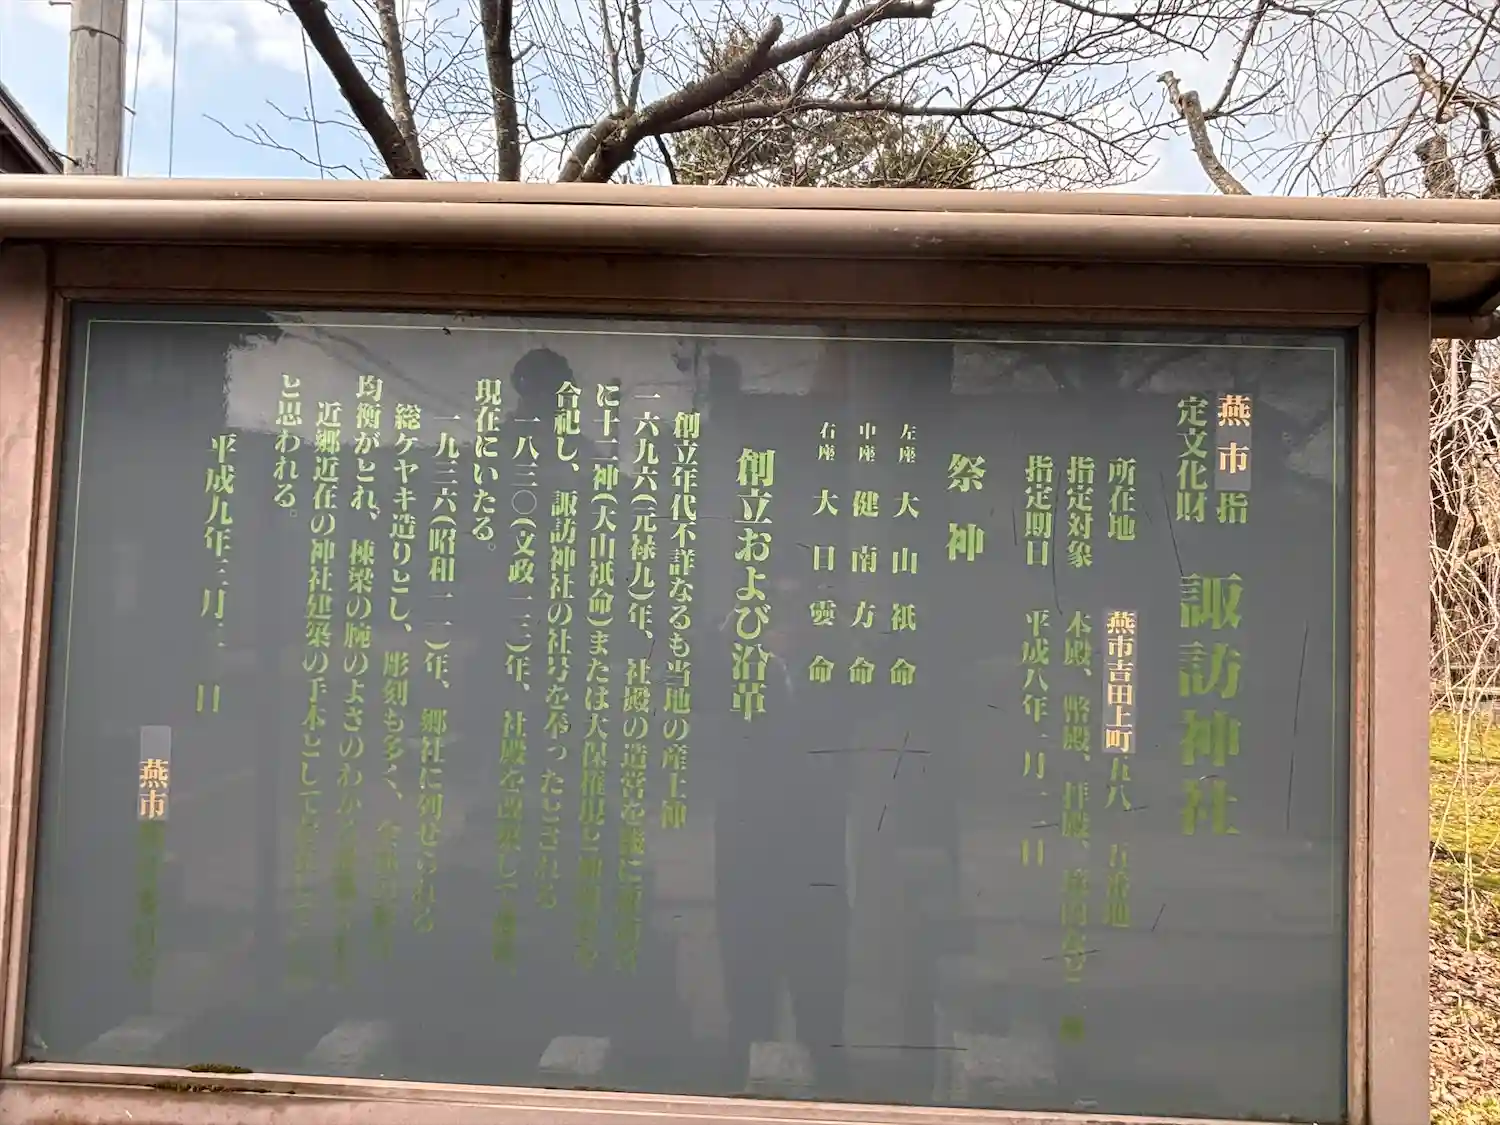 燕市指
定文化財
諏訪神社
所在地 燕市吉田上町五八一五番地
指定対象 本殿、幣殿、拝殿、
指定期日 平成八年二月二一日
祭神
左座 大山祇命
中座 健南方命
右座 大日孁命
創立および沿革
創立年代不詳なるも当地の産土神
一六九六(元禄九)年、社殿の造営を
に十二神(大山祇命)または大保権現と
合祀し、諏訪神社の社号を奉ったとされる
一八三〇(文政一三)年、社殿を改築して
現在にいたる。
一九三六(昭和一一)年、郷社に列せられる
総ケヤキ造りとし、彫刻も多く、
均衡がとれ、棟梁の腕のよさのわかる
近郷近在の神社建築の手本として
と思われる。
平成九年三月 日
燕市